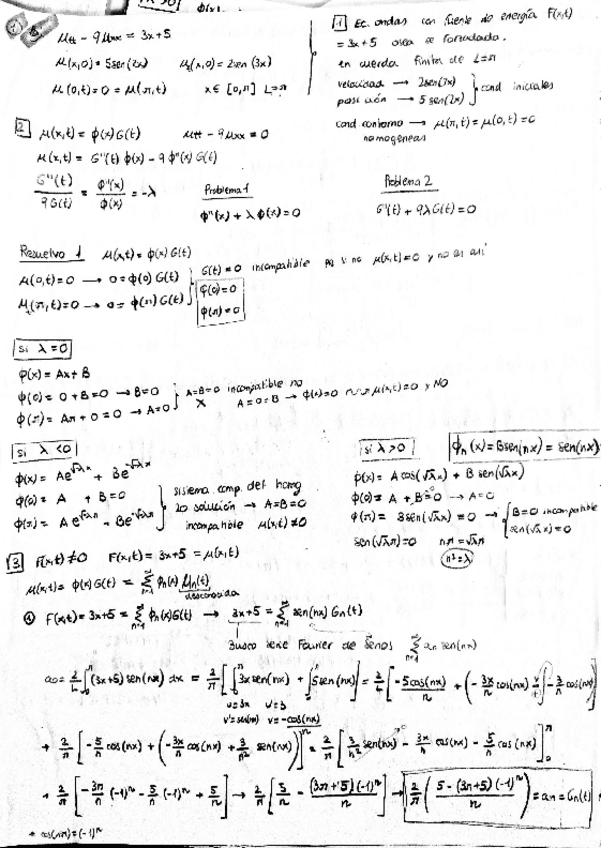 μtt - 9μxx = 3x+5
μ(x,0) = 5sen(2x) μt(x,0) = 2sen(3x)
μ(0,t) = 0 = μ(π,t) x∈[0,π] L=π
1 Ec. ondas con fuente de energía F(x,t)
= 3x+5 osea es forzada.
en cuerda finita de L=π
velocidad → 2sen(3x)
posición → 5sen(2x) } cond iniciales
cond contorno → μ(π,t) = μ(0,t) = 0
homogéneas
2 μ(x,t) = φ(x)G(t) μtt - 9μxx = 0
μ(x,t) = G''(t)φ(x) - 9φ''(x)G(t)
G''(t)/9G(t) = φ''(x)/φ(x) = -λ
Problema 1
φ''(x) + λφ(x) = 0
Problema 2
G''(t) + 9λG(t) = 0
Resuelvo 1 μ(x,t) = φ(x)G(t)
μ(0,t)=0 → 0 = φ(0)G(t)
μ(π,t)=0 → 0 = φ(π)G(t)
G(t)=0 incompatible μ(x,t)=0 y no es así
φ(0)=0
φ(π)=0
si λ=0
φ(x) = Ax + B
φ(0) = 0 + B = 0 → B=0
φ(π) = Aπ + 0 = 0 → A=0
A=B=0 incompatible no
A=0=B → φ(x)=0 μ(x,t)=0 y NO
si λ<0
φ(x) = Ae^√λx + Be^-√λx
φ(0) = A + B = 0
φ(π) = Ae^√λπ + Be^-√λπ
sistema comp. det homog
solución → A=B=0
incompatible μ(x,t)≠0
si λ>0
φn(x) = Bsen(nx) = sen(nx)
φ(x) = A cos(√λx) + B sen(√λx)
φ(0) = A + B·0 = 0 → A=0
φ(π) = Bsen(√λπ) = 0 → { B=0 incompatible
sen(√λπ)=0
sen(√λπ)=0 nπ=√λπ
n²=λ
3 F(x,t)≠0 F(x,t) = 3x+5 = μ(x,t)
μ(x,t) = φ(x)G(t) = Σ n=1 ∞ φn(x) μn(t)
desconocida
① F(x,t) = 3x+5 = Σ n=1 ∞ φn(x)G(t) → 3x+5 = Σ n=1 ∞ sen(nx)Gn(t)
Busco serie Fourier de senos Σ n=1 ∞ an sen(nx)
= 2/L ∫ (3x+5)sen(nx)dx = 2/π [∫ 3x sen(nx) + ∫ 5 sen(nx)]
+ 2/π [-5/n cos(nx) + (-3x/n cos(nx) + 3/n² sen(nx))] = 2/π [3/n² sen(nx) - 3x/n cos(nx) - 5/n cos(nx)]
+ 2/π [-3π/n (-1)^n - 5/n (-1)^n + 5/n] → 2/π [5/n - (3π+5)(-1)^n/n] → 2/π (5-(3π+5)(-1)^n/n) = an = Gn(t)
* cos(nπ) = (-1)^n